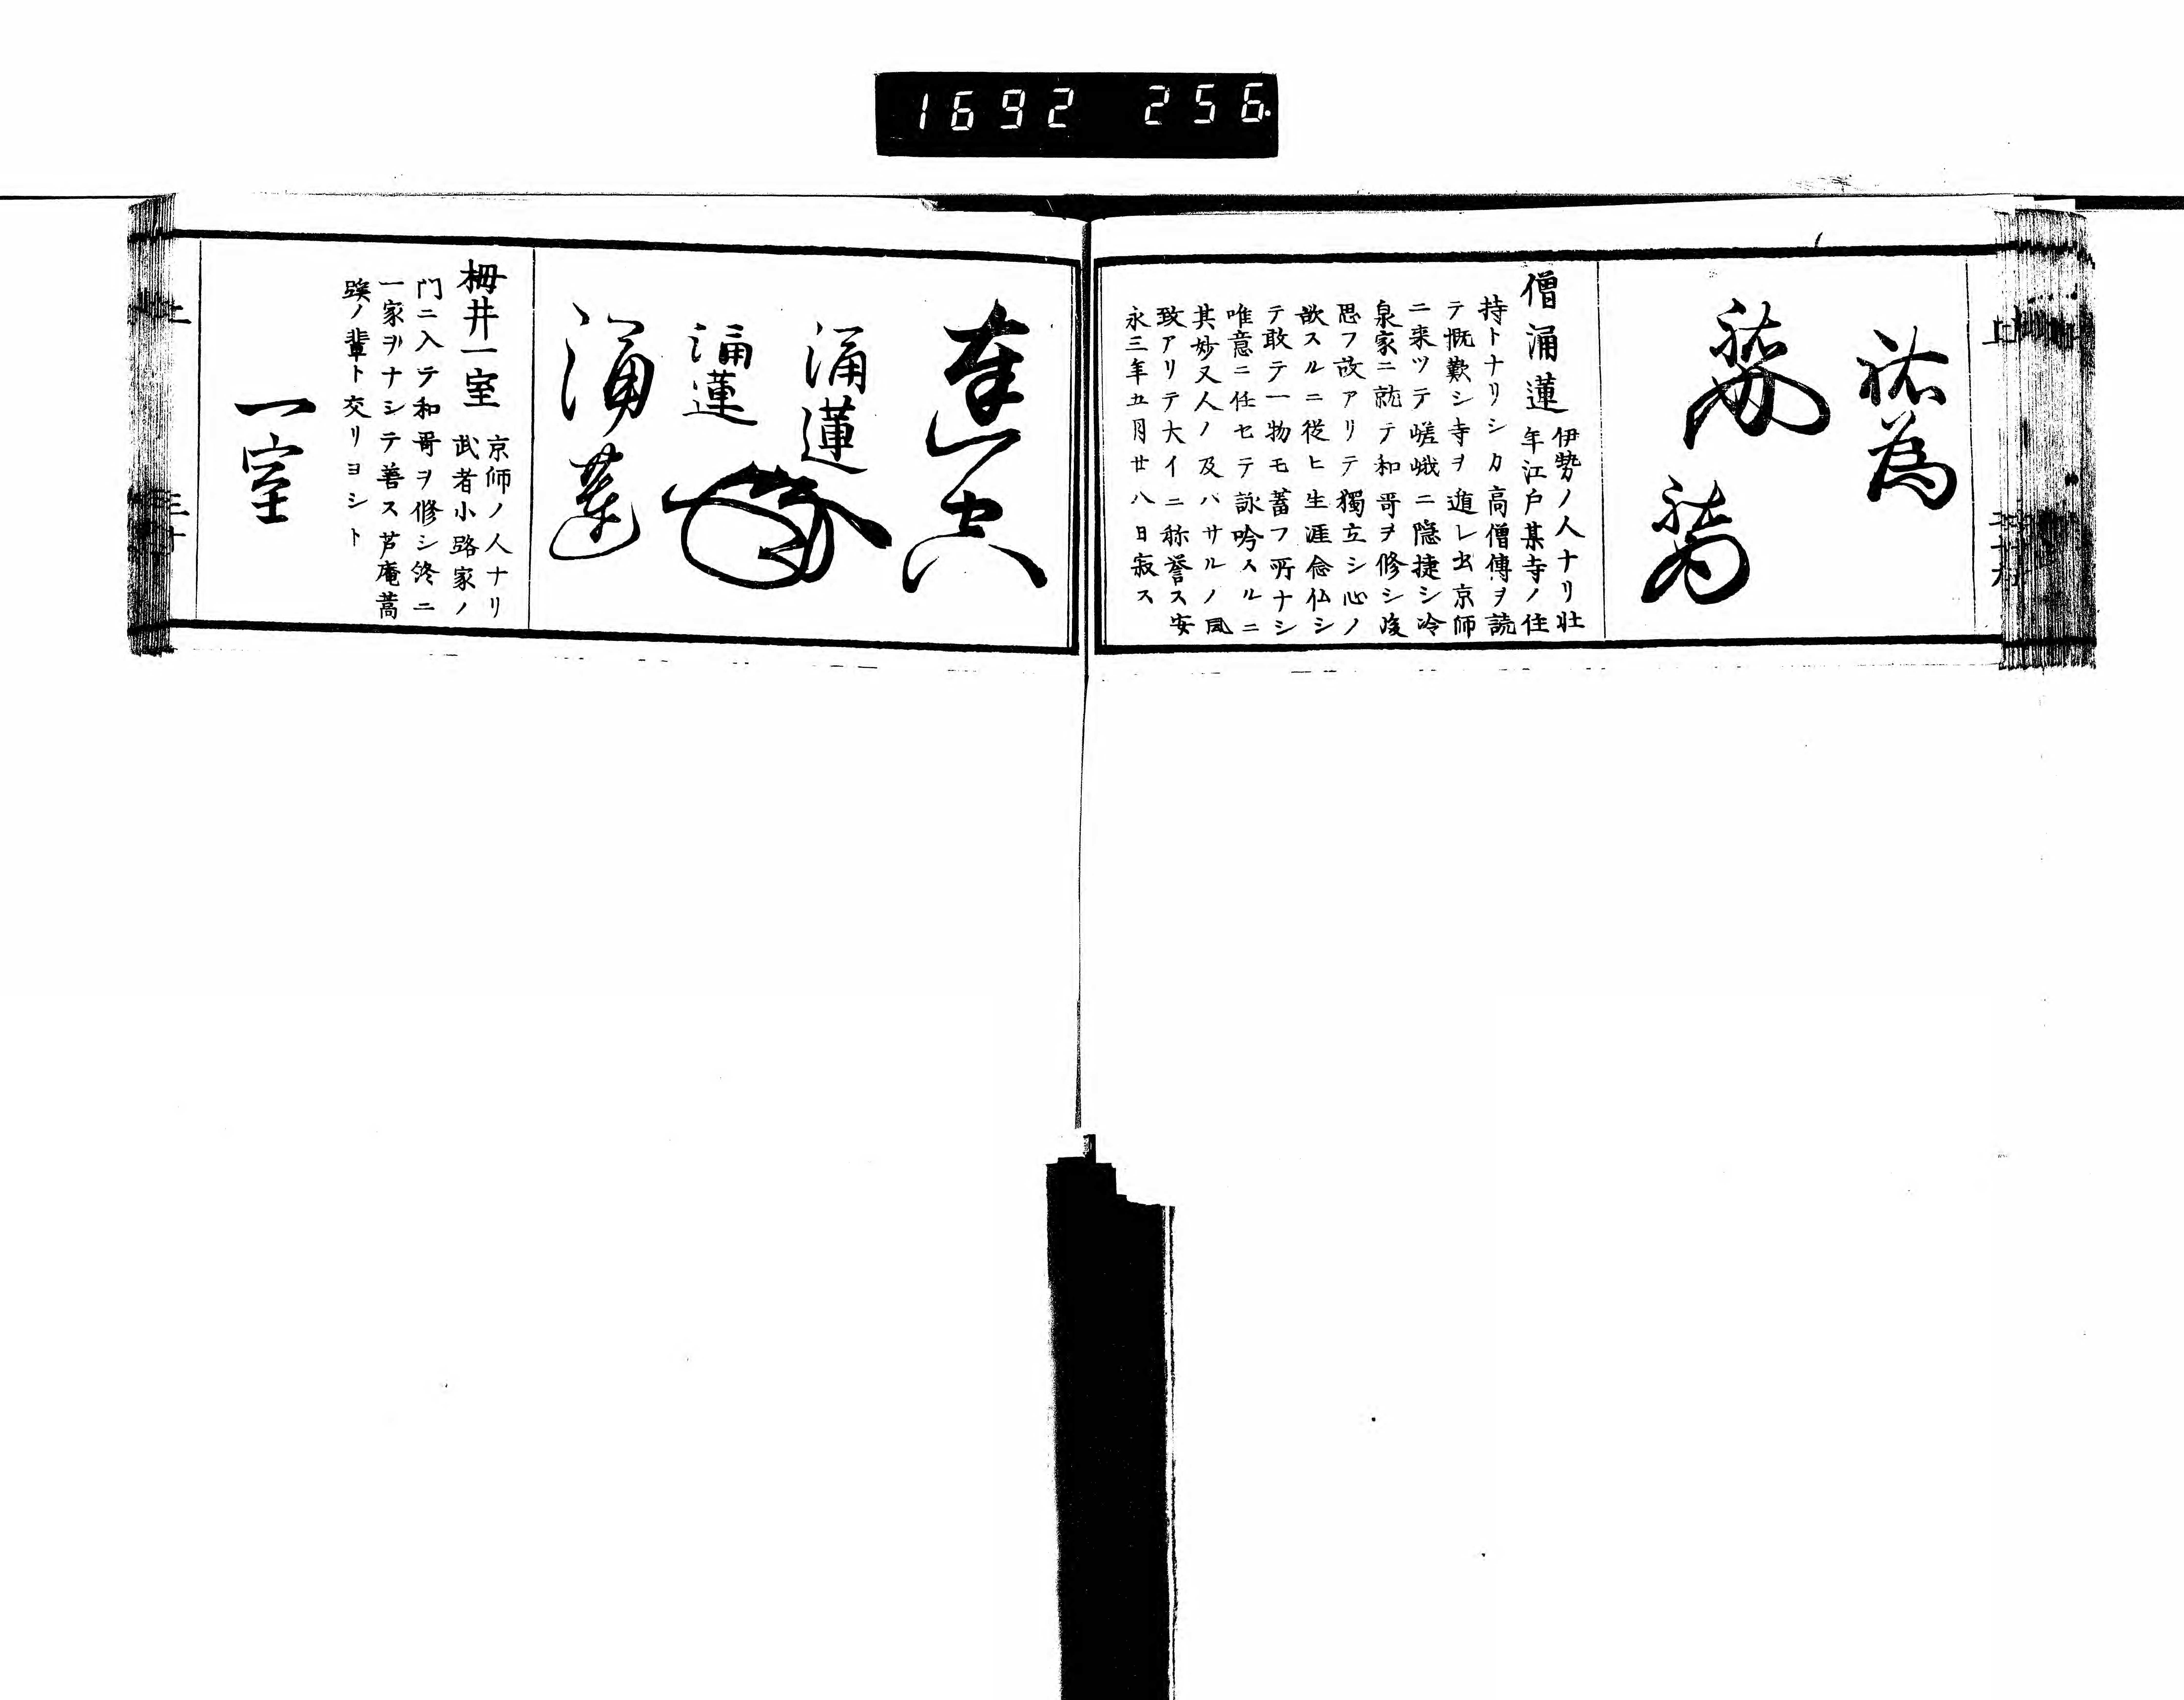 1692 256.
祐為
僧涌蓮
伊勢ノ人ナリ壮
年江戸某寺ノ住
持トナリシカ高僧傳ヲ読
テ慨歎シ寺ヲ遁レ出京師
ニ来ツテ嵯峨ニ隠捷シ冷
泉家ニ就テ和哥ヲ修シ後
思フ故アリテ獨立シ心ノ
欲スルニ従ヒ生涯念仏シ
テ敢テ一物モ蓄フ所ナシ
唯意ニ任セテ詠吟スルニ
其妙又人ノ及バサルノ風
致アリテ大イニ称誉ス安
永三年五月廿八日寂ス
涌蓮
涌蓮
涌蓮
栂井一室
京師ノ人ナリ
武者小路家ノ
門ニ入テ和哥ヲ修シ終ニ
一家ヲナシテ善ス芦庵蒿
蹊ノ輩ト交リヨシト
一室
上